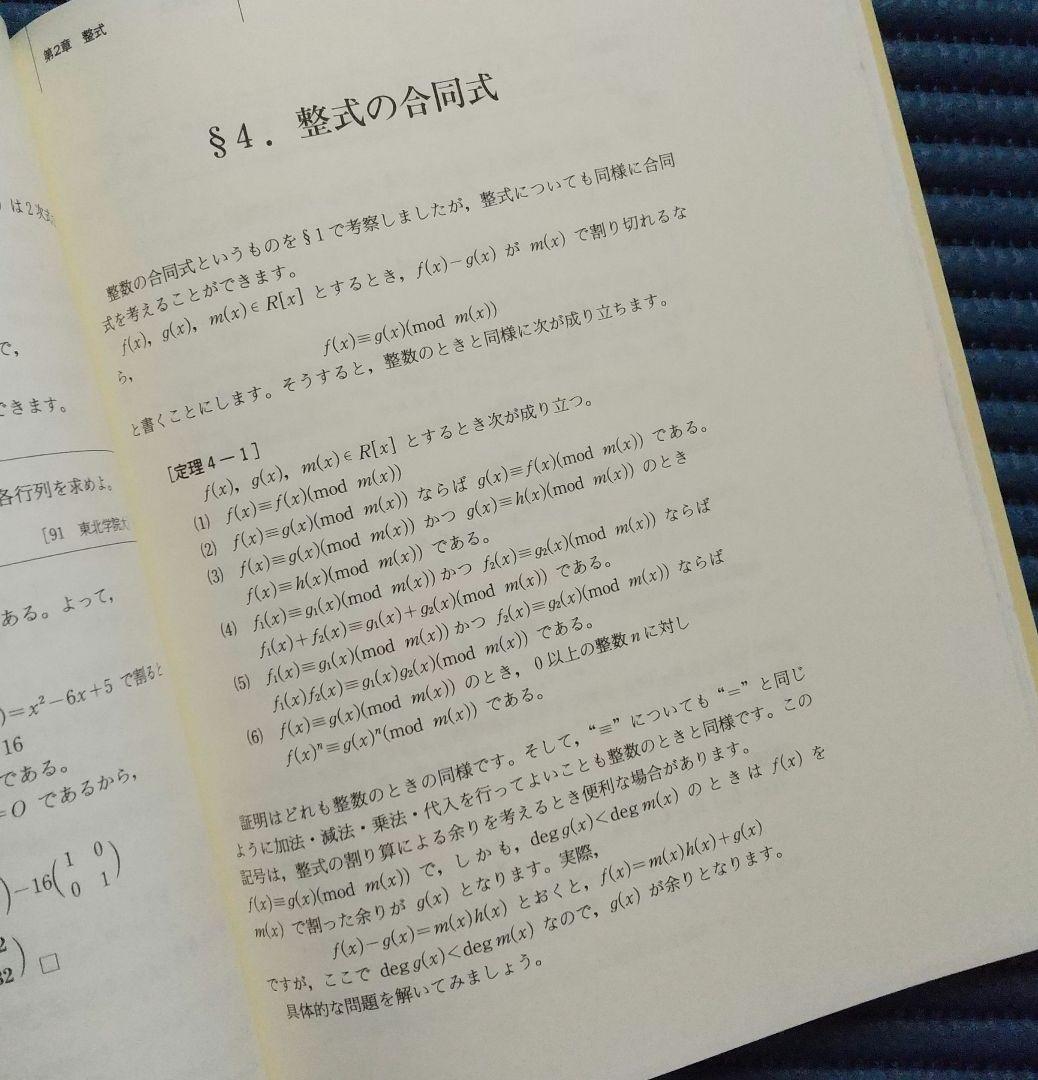 は2次式
で,
できます。
各行列を求めよ。
[91 東北学院大
ある。よって,
)=x²−6x+5 で割ると
16
である。
=O であるから,
)−16(1 0
0 1)
2
32) □
第2章 整式
§4. 整式の合同式
整数の合同式というものを§1で考察しましたが，整式についても同様に合同
式を考えることができます。
f(x), g(x), m(x)∈R[x] とするとき，f(x)−g(x) が m(x) で割り切れるな
ら，
f(x)≡g(x)(mod m(x))
と書くことにします。そうすると，整数のときと同様に次が成り立ちます。
[定理4−1]
f(x), g(x), m(x)∈R[x] とするとき次が成り立つ。
(1) f(x)≡f(x)(mod m(x))
(2) f(x)≡g(x)(mod m(x)) ならば g(x)≡f(x)(mod m(x)) である。
(3) f(x)≡g(x)(mod m(x)) かつ g(x)≡h(x)(mod m(x)) のとき
f(x)≡h(x)(mod m(x)) である。
(4) f₁(x)≡g₁(x)(mod m(x))かつ f₂(x)≡g₂(x)(mod m(x)) ならば
f₁(x)+f₂(x)≡g₁(x)+g₂(x)(mod m(x)) である。
(5) f₁(x)≡g₁(x)(mod m(x))かつ f₂(x)≡g₂(x)(mod m(x)) ならば
f₁(x)f₂(x)≡g₁(x)g₂(x)(mod m(x)) である。
(6) f(x)≡g(x)(mod m(x)) のとき，0以上の整数 n に対し
f(x)ⁿ≡g(x)ⁿ(mod m(x)) である。
証明はどれも整数のときの同様です。そして，“≡” についても “=” と同じ
ように加法・減法・乗法・代入を行ってよいことも整数のときと同様です。この
記号は，整式の割り算による余りを考えるとき便利な場合があります。
f(x)≡g(x)(mod m(x)) で，しかも，deg g(x)<deg m(x) のときは f(x) を
m(x) で割った余りが g(x) となります。実際，
f(x)−g(x)=m(x)h(x) とおくと，f(x)=m(x)h(x)+g(x)
ですが，ここで deg g(x)<deg m(x) なので，g(x) が余りとなります。
具体的な問題を解いてみましょう。